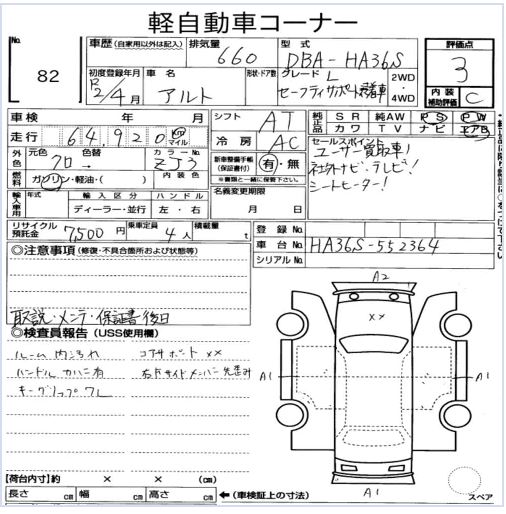 軽自動車コーナー
No.
82
車歴 (自家用以外は記入)
排気量 660
型式 DBA-HA36S
評価点 3
初度登録年月 R2/4月
車名 アルト
形状・ドア数
グレード L
セーフティサポート装着車
2WD
・
4WD
内装補助評価 C
車検 年 月
シフト AT
純正品 SR 純AW PS PW
カワ TV ナビ エアB
走行 64,920 km マイル
冷房 AC
セールスポイント
ユーザー買取車!
社外ナビ・テレビ!
シートヒーター!
外色 元色 色替 カラーNo.
クロ → ZJ3
新車整備手帳(保証書付) 有・無
※書類と一緒に保管下さい。
燃料 ガソリン・軽油・( ) 内装色
名義変更期限
月 日
輸入車用 年式 輸入区分 ハンドル
ディーラー・並行 左・右
リサイクル預託金 7,500円
乗車定員 4人
積載量 t
登録No.
車台No. HA36S-552364
シリアルNo.
◎注意事項 (修復・不具合箇所および状態等)
取説・メンテ・保証書後日
◎検査員報告 (USS使用欄)
ルーム内汚れ コアサポート××
ハンドルカバー有 右Fサイドメンバー先歪み
キーグリップワレ
A2
××
A1
A1
A1
スペア
【荷台内寸】約 × × (cm)
長さ cm 幅 cm 高さ cm
←(車検証上の寸法)